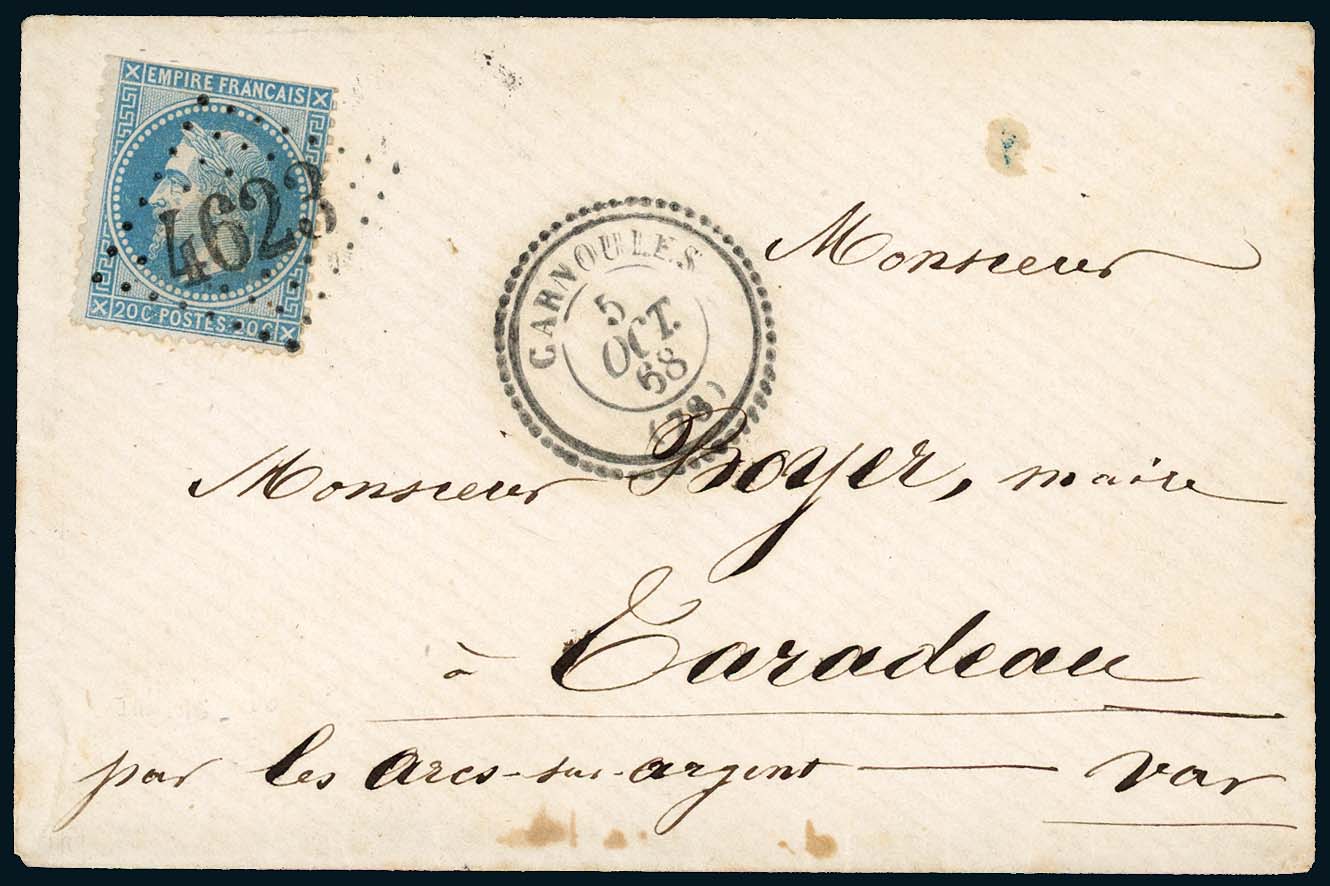 EMPIRE FRANÇAIS
4623
20C POSTES 20C
CARNOULES
5
OCT.
68
(78)
Monsieur
Monsieur Boyer, maire
à Taradeau
par les arcs-sur-argent — var